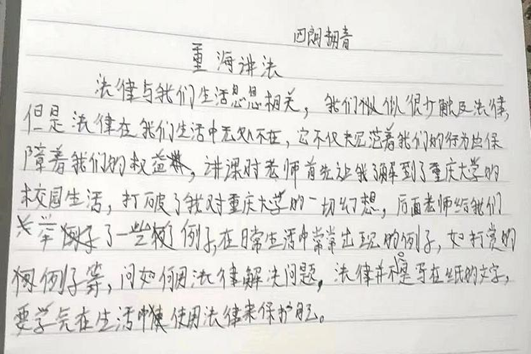 四朗翻青
重海讲法
法律与我们生活息息相关，我们似似很少触及法律，
但是法律在我们生活中无处不在，它不仅规范着我们的行为也保
障着我们的权益，讲课时老师首先让我了解到了重庆大学的
校园生活，打破了我对重庆大学的一切幻想，后面老师给我们
举了一些例子，在日常生活中常常出现的例子，如打赏的
例子等，问如何用法律解决问题，法律并不是写在纸的文字，
要学会在生活中使用法律来保护自己。